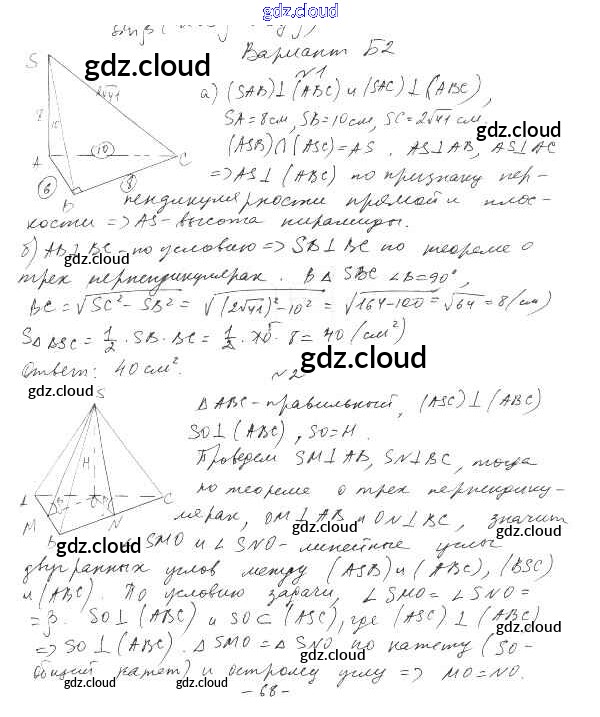 gdz.cloud
Вариант Б2
gdz.cloud
№1
а) (SAB)⊥(ABC) и (SAC)⊥(ABC),
SA=8см, SB=10см, SC=2√41 см,
gdz.cloud
(ASB)∩(ASC)=AS. AS⊥AB, AS⊥AC
⇒AS⊥(ABC) по признаку пер-
пендикулярности прямой и плос-
кости ⇒ AS-высота пирамиды.
S
2√41
8
10
A
10
C
6
8
B
gdz.cloud
б) AB⊥BC-по условию ⇒ SB⊥BC по теореме о
gdz.cloud
трех перпендикулярах. В Δ SBC ∠B=90°,
BC=√SC²-SB² = √(2√41)²-10² = √164-100 = √64 = 8(см)
SΔBSC = 1/2 · SB · BC = 1/2 · 10 · 8 = 40 (см²)
Ответ: 40см².
gdz.cloud
gdz.cloud
№2
ΔABC-правильный, (ASC)⊥(ABC)
SO⊥(ABC), SO=H.
Проведем SM⊥AB, SN⊥BC, тогда
gdz.cloud
по теореме о трех перпендику-
лярах, OM⊥AB и ON⊥BC, значит
gdz.cloud
S
H
A
O
C
M
N
B
gdz.cloud
∠SMO и ∠SNO-линейные углы
двугранных углов между (ASB) и (ABC), (BSC)
и (ABC). По условию задачи, ∠SMO=∠SNO=
gdz.cloud
=β. SO⊥(ABC) и SO⊂(ASC), где (ASC)⊥(ABC)
⇒ SO⊥(ABC). ΔSMO=ΔSNO по катету (SO-
общий катет) и острому углу ⇒ MO=NO.
gdz.cloud
gdz.cloud
-68-